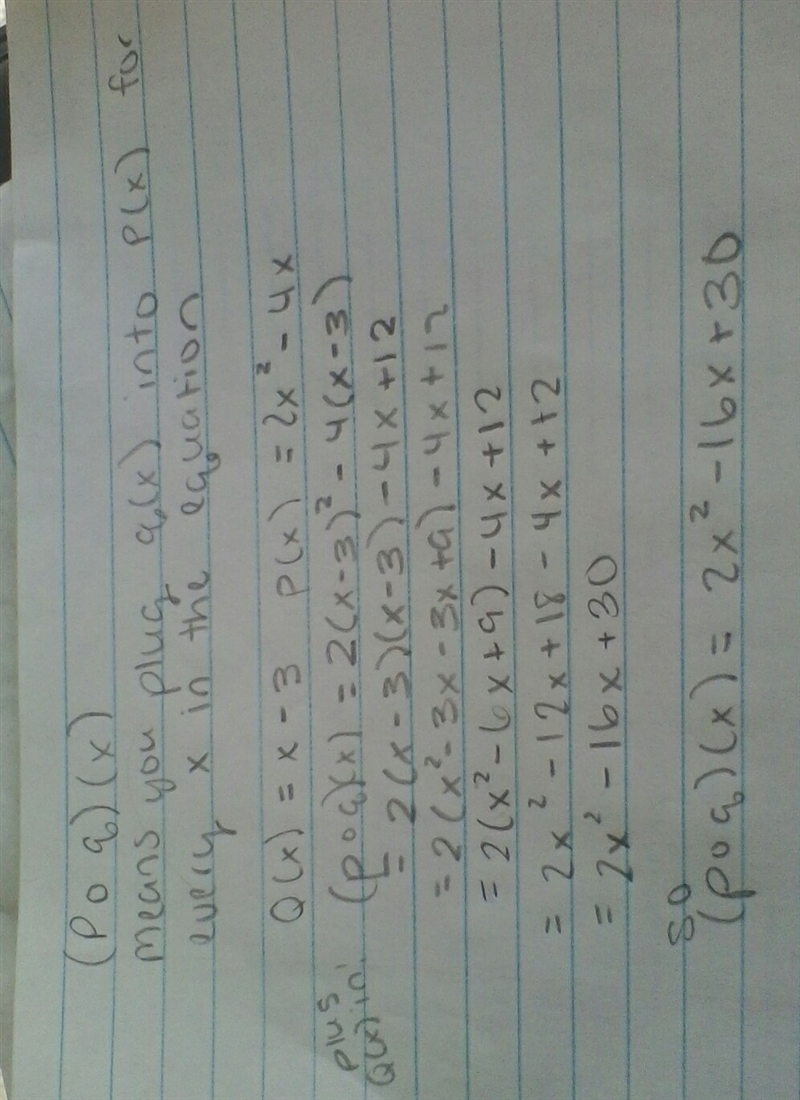 (P o q)(x)
means you plug q(x) into P(x) for
every x in the equation
Q(x) = x - 3 P(x) = 2x² - 4x
plus
Q(x) in:
(p o q)(x) = 2(x-3)² - 4(x-3)
= 2(x-3)(x-3) - 4x + 12
= 2(x² - 3x - 3x + 9) - 4x + 12
= 2(x² - 6x + 9) - 4x + 12
= 2x² - 12x + 18 - 4x + 12
= 2x² - 16x + 30
so
(p o q)(x) = 2x² - 16x + 30